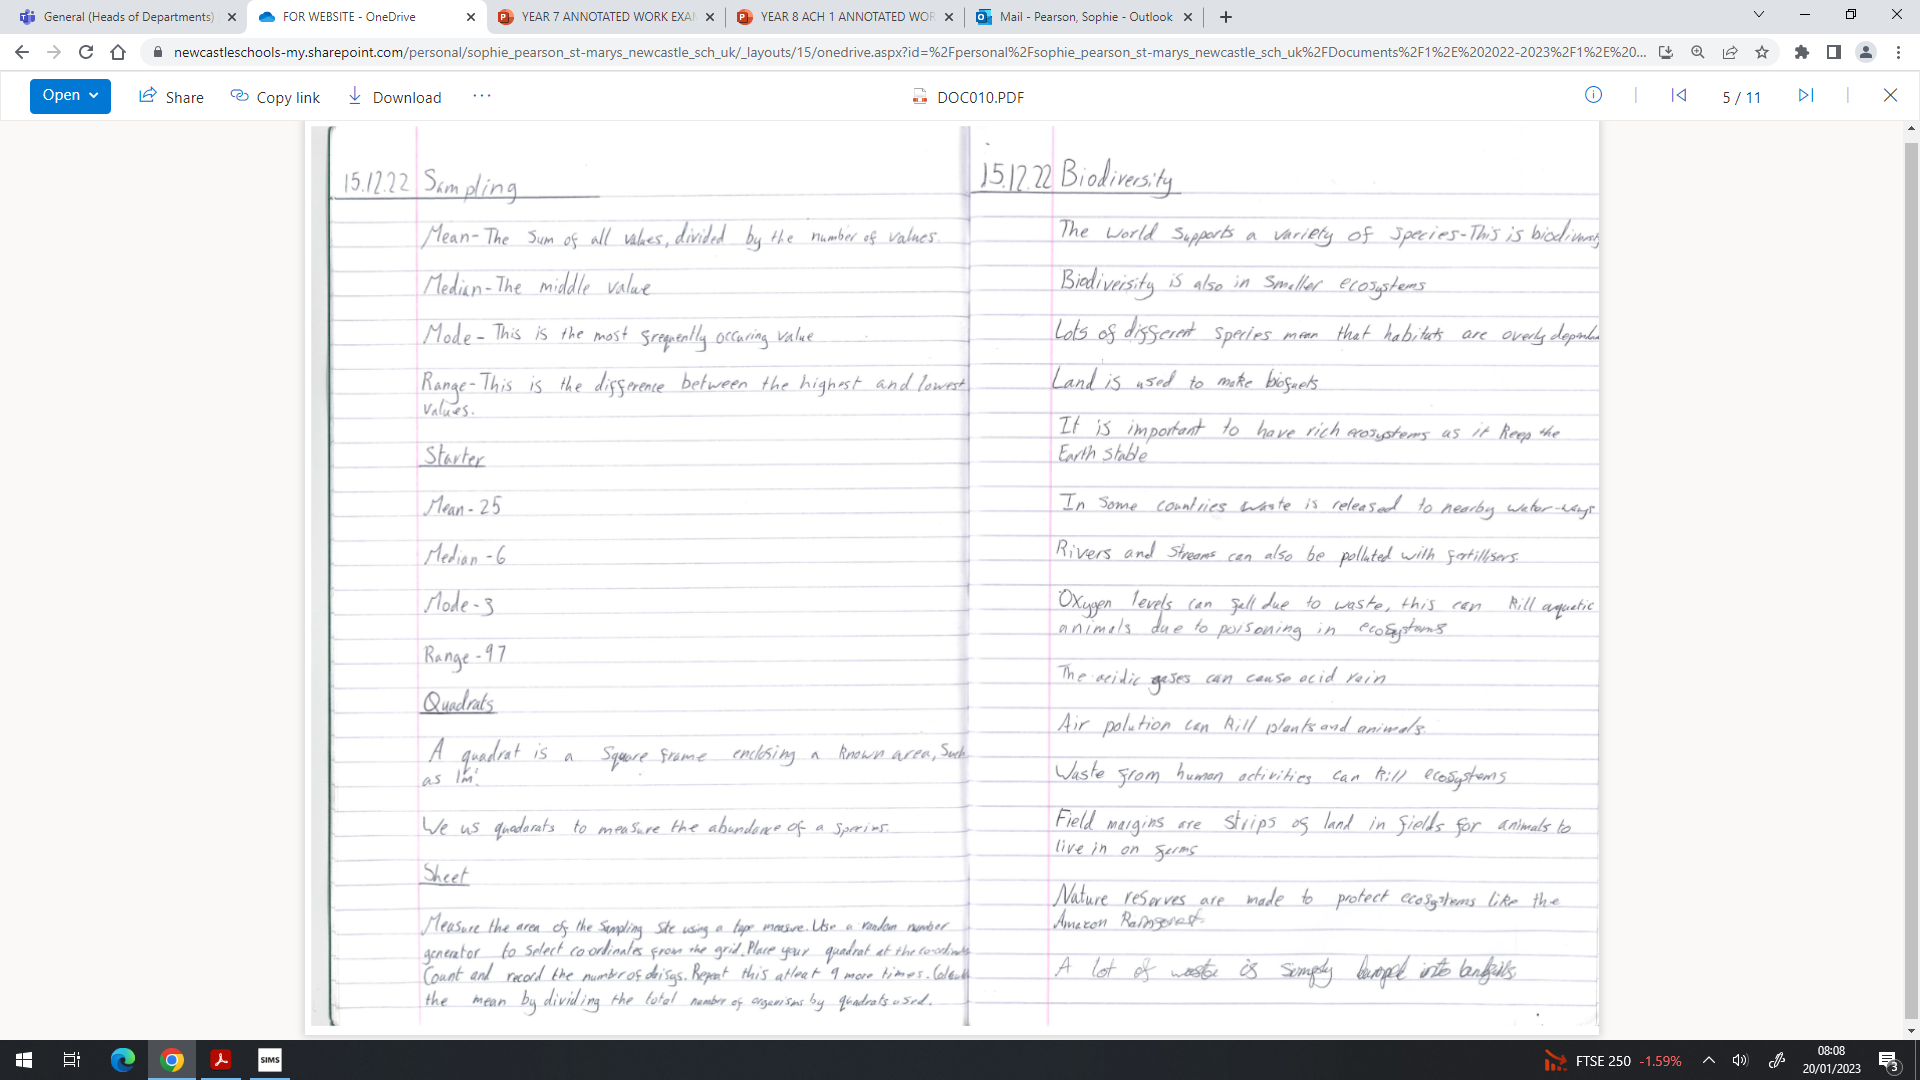 General (Heads of Departments)
FOR WEBSITE - OneDrive
YEAR 7 ANNOTATED WORK EXA
YEAR 8 ACH 1 ANNOTATED WOR
Mail - Pearson, Sophie - Outlook
newcastleschools-my.sharepoint.com/personal/sophie_pearson_st-marys_newcastle_sch_uk/_layouts/15/onedrive.aspx?id=%2Fpersonal%2Fsophie_pearson_st-marys_newcastle_sch_uk%2FDocuments%2F1%2E%202022-2023%2F1%2E%20...
Open
Share
Copy link
Download
DOC010.PDF
5 / 11
15.12.22 Sampling
Mean-The sum of all values, divided by the number of values.
Median-The middle value
Mode - This is the most frequently occuring value
Range-This is the difference between the highest and lowest
values.
Starter
Mean - 25
Median - 6
Mode - 3
Range - 97
Quadrats
A quadrat is a square frame enclosing a known area, such
as 1m²
We us quadarats to measure the abundance of a species.
Sheet
Measure the area of the sampling site using a tape measure. Use a random number
generator to select coordinates from the grid. Place your quadrat at the coordinate
Count and record the number of daisys. Repeat this atleat 9 more times. Calcula
the mean by dividing the total number of organisms by quadrats used.
15.12.22 Biodiversity
The world supports a variety of species-This is biodiversity
Biodiversity is also in smaller ecosystems
Lots of different species mean that habitats are overly dependan
Land is used to make biofuels
It is important to have rich ecosystems as it keep the
Earth stable
In some countries waste is released to nearby water-ways
Rivers and streams can also be polluted with fertillisers.
Oxygen levels can fall due to waste, this can kill aquatic
animals due to poisoning in ecosystems
The acidic gases can cause acid rain
Air polution can kill plants and animals.
Waste from human activities can kill ecosystems
Field margins are strips of land in fields for animals to
live in on farms
Nature reserves are made to protect ecosystems like the
Amazon Rainforest
A lot of waste is simply dumped into landfills
SIMS
FTSE 250 -1.59%
08:08
20/01/2023
3